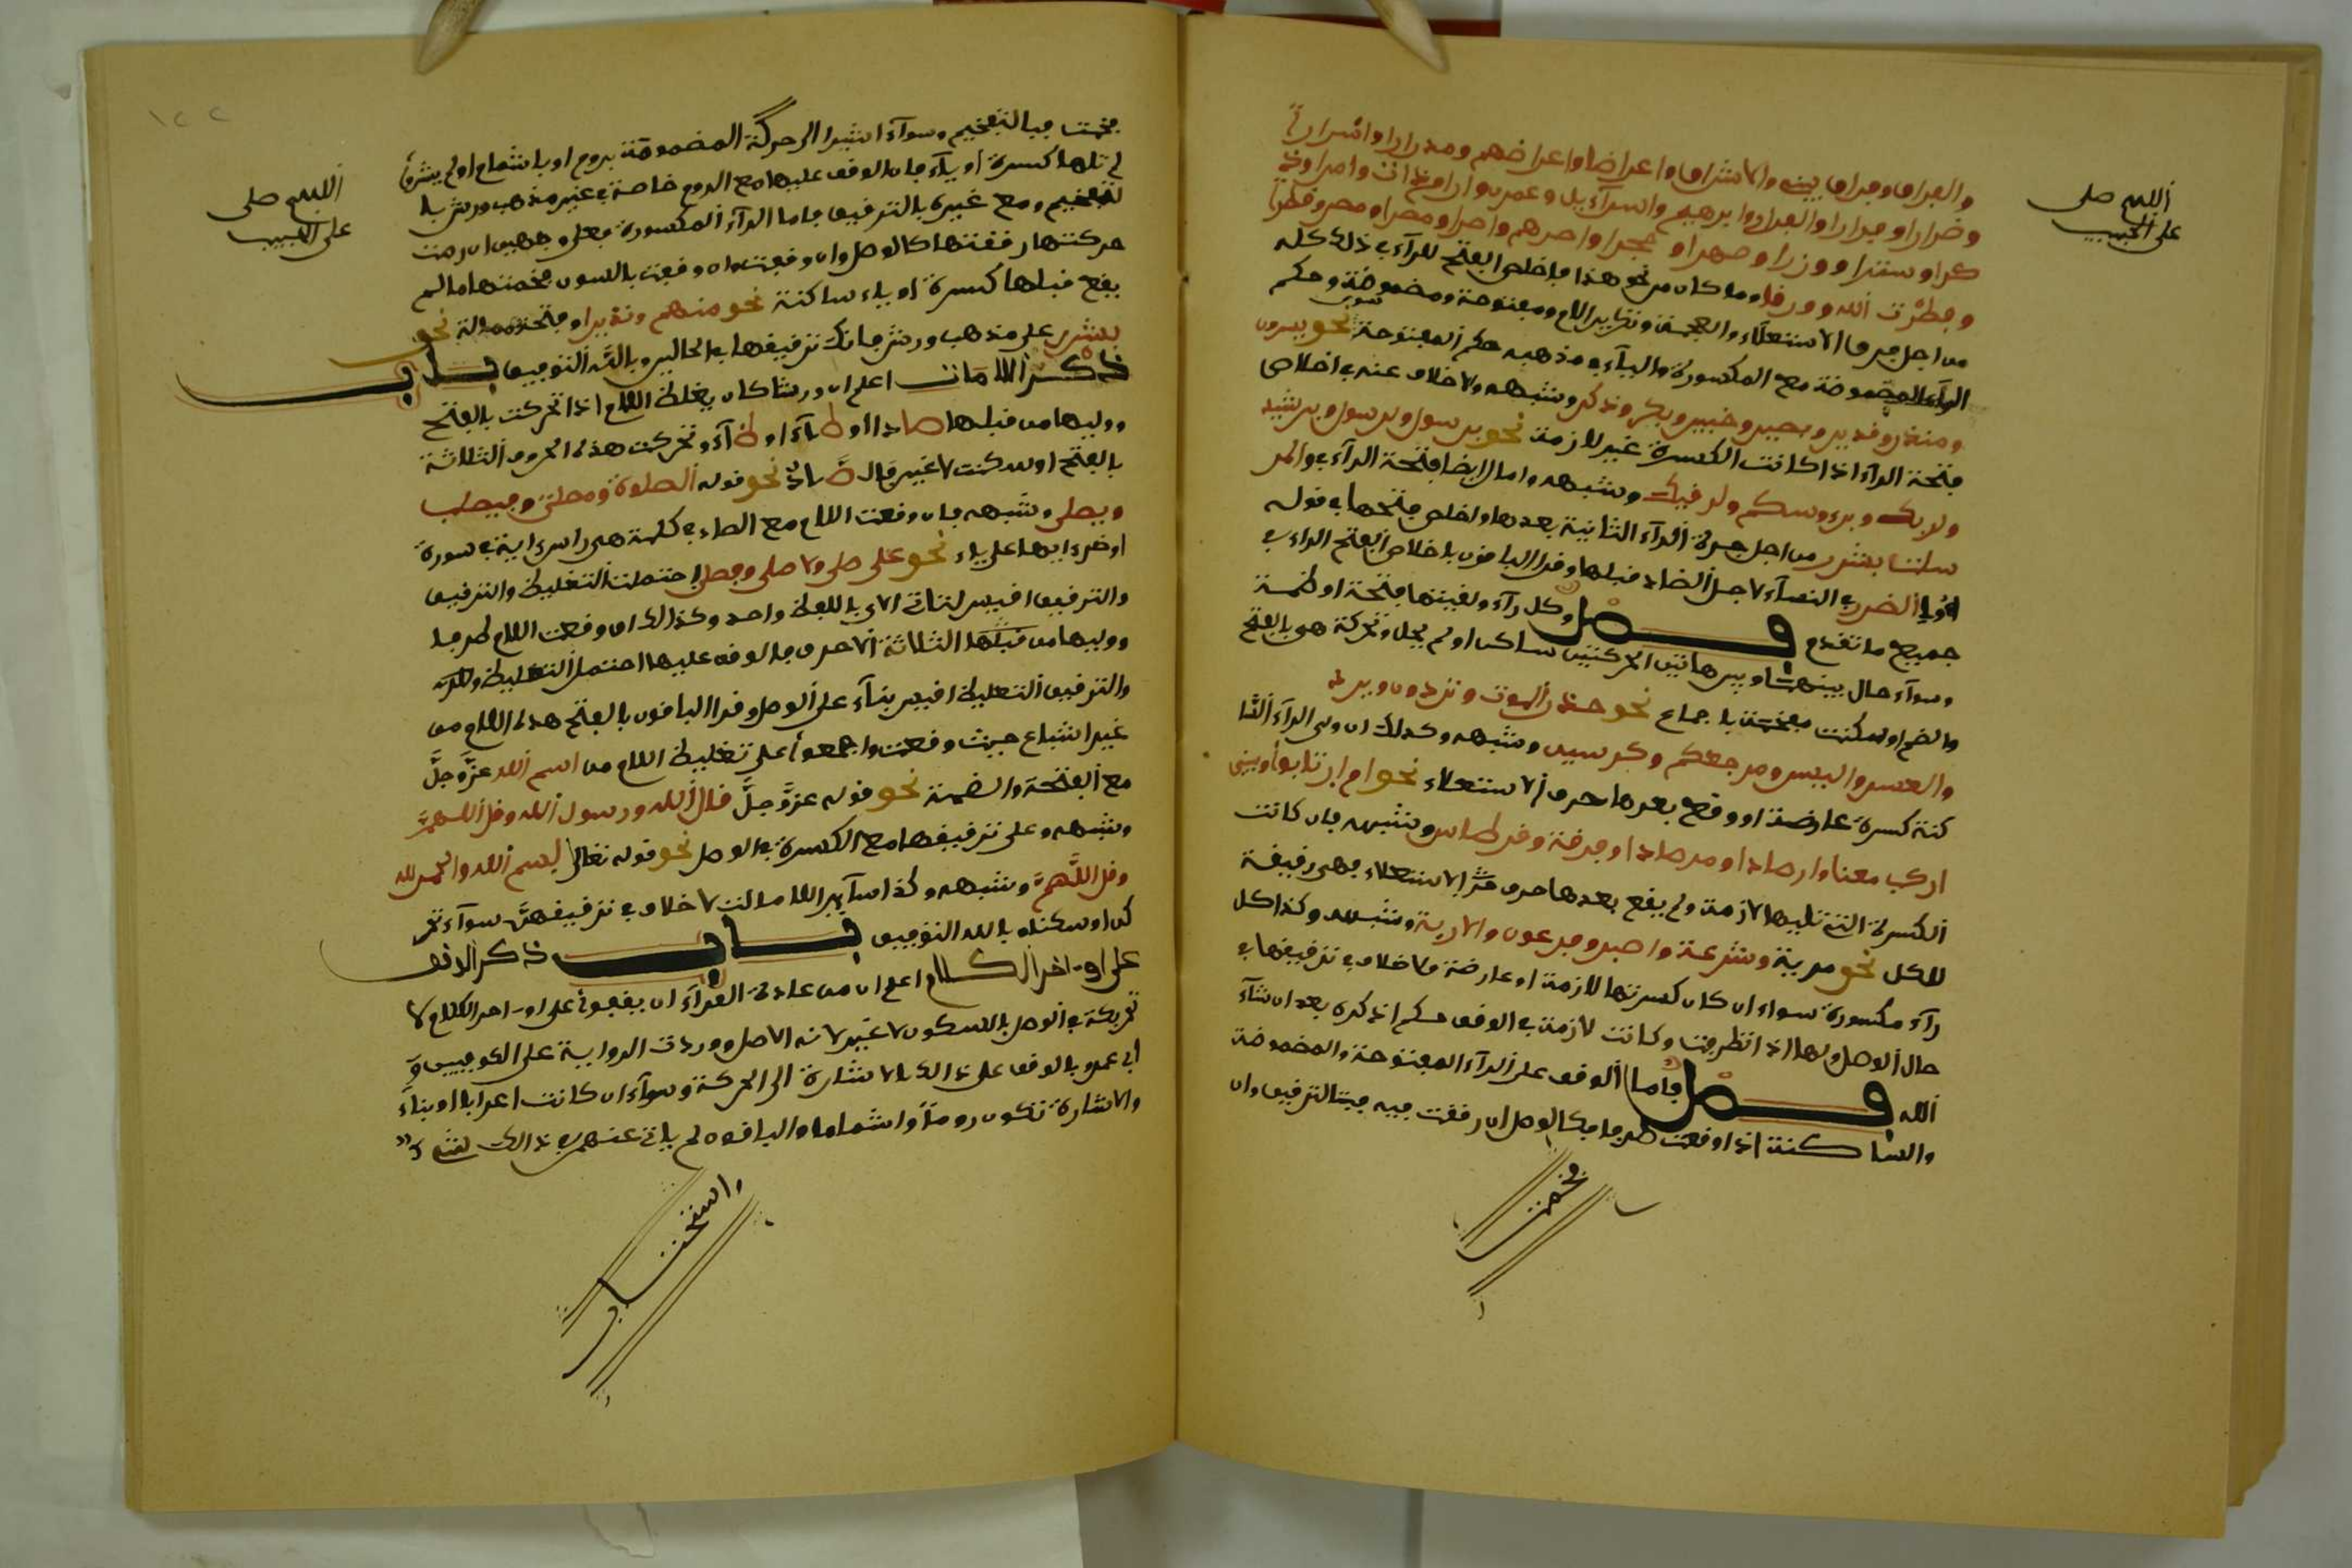 اللهم صل
على الحبيب
والفراق وفراق بيني والاشراق واعراضا واعراضهم ومدرارا واسرارا
وضرارا وفرارا والفرار وابرهيم واسرآءيل وعمرن وارم ذات وامرا وذ
كرا وسترا ووزرا وصهرا وحجرا واصرهم واصرا ومصرا ومصر وقطرا
وفطرت الله ووقرا وما كان من نحو هذا فاخلص الفتح للرآء في ذلك كله
من اجل حرف الاستعلآء والعجمة وتكرير الراء مفتوحة ومضمومة وحكم
الرآء المضمومة مع الكسرة والياء في مذهبه حكم المفتوحة نحو يسرون
ومنذر وقدير وبصير وخبير وبكر وذكر وشبهه ولا خلاف عنه في اخلاص
فتحة الرآء اذا كانت الكسرة غير لازمة نحو برسول ولرسول وبرشيد
ولربك وبرءوسكم ولرقيك وشبهه وامال ايضا فتحة الرآء في والمر
سلت بشرر من اجل جرة الرآء الثانية بعدها واخلص فتحها في قوله
اولي الضرر في النسآء لاجل الضاد قبلها وقرا الباقون باخلاص الفتح للراء في
جميع ما تقدم فصل وكل رآء وليتها فتحة او ضمة
وسوآء حال بينهما وبين هاتين الحركتين ساكن او لم يحل وتحركت هي بالفتح
والضم او سكنت مفخمة باجماع نحو حذر الموت وتردون ويرد
والعسر واليسر ومرجعكم وكرسيه وشبهه وكذلك ان ولي الرآء السا
كنة كسرة عارضة او وقع بعدها حرف الاستعلاء نحو ام ارتابوا ويبني
اركب معنا وارصادا ومرصادا وفرقة وقرطاس وشبهه فان كانت
الكسرة التي تليها لازمة ولم يقع بعدها حرف من الاستعلاء فهي رقيقة
للكل نحو مرية وشرعة واصبر وفرعون والاربة وشبهه وكذا كل
رآء مكسورة سواء ان كان كسرتها لازمة او عارضة ولا خلاف في ترقيقها في
حال الوصل ولها اذا تطرفت وكانت لازمة في الوقف حكم اذكره بعد ان شآء
الله فصل فاما الوقف على الرآء المفتوحة والمضمومة
والساكنة اذا وقعت طرفا فكالوصل ان رققت فيه فبالترقيق وان
فخمت
١٢٢
اللهم صل
على الحبيب
فخمت فبالتفخيم وسوآء اشير الى حركة المضمومة بروم او باشمام او لم يشر ما
لم تلها كسرة او يآء فان الوقف عليها مع الروم خاصة في غير مذهب ورش با
لتفخيم ومع غيره بالترقيق فاما الرآء المكسورة فعلى وجهين ان رمت
حركتها رققتها كالوصل وان وقفت بالسكون فخمتها ما لم
يقع قبلها كسرة او ياء ساكنة نحو منهمر ونذير او فتحة ممالة نحو
بشرر على مذهب ورش فانك ترقيقها في الحالين وبالله التوفيق باب
ذكر اللامات اعلم ان ورشا كان يغلظ اللام اذا تحركت بالفتح
ووليها من قبلها صاد او طآء او ظآء وتحركت هذه الحروف الثلاثة
بالفتح او سكنت لا غير فالصاد نحو قوله الصلوة ومصلى وفيصلب
ويصلى وشبهه فان وقعت اللام مع الصاد في كلمة هي راس اية في سورة
اوخر ايها على ياء نحو على صلى ولا صلى وفصلى احتملت التغليظ والترقيق
والترقيق اقيس لتاتي الاي بالفظ واحد وكذلك ان وقعت اللام طرفا
ووليها من قبلها الثلاثة الاحرف فالوقف عليها احتمل التغليظ والترقيق
والترقيق التغليظ اقيس بنآء على الوصل وقرا الباقون بالفتح هذه اللام من
غير اشباع حيث وقعت واجمعوا على تغليظ اللام من اسم الله عز وجل
مع الفتحة والضمة نحو قوله عز وجل قال الله ورسول الله وقل اللهم
وشبهه وعلى ترقيقها مع الكسرة في الوصل نحو قوله تعالى بسم الله والحمد لله
وقل اللهم وشبهه وكذا سآير اللامات لا خلاف في ترقيقهن سوآء تحر
كن او سكن وبالله التوفيق باب ذكر الوقف
على اواخر الكلام اعلم ان من عادة القرآء ان يقفوا على اواخر الكلام لا
تحركة في الوصل بالسكون لا غير لانه الاصل ووردت الرواية على الكوفيين و
ابي عمرو بالوقف على ذالك بالاشارة الى الحركة وسوآء ان كانت اعرابا او بنآء
والاشارة تكون روما واشماما والباقون لم يات عنهم في ذالك شيء
واستحب